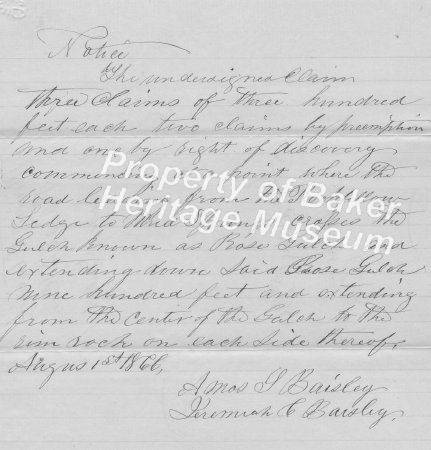 Notice
The undersigned Claim
three Claims of three hundred
feet each two claims by preemption
and one by right of discovery
commencing at a point where the
road leading from
Ledge to crosses the
Gulch known as Rose Gulch and
extending down said Rose Gulch
nine hundred feet and extending
from the center of the Gulch to the
rim rock on each side thereof
Augus 1st 1866,
Amos I Baisley
Jeremiah C Baisley.
Property of Baker
Heritage Museum